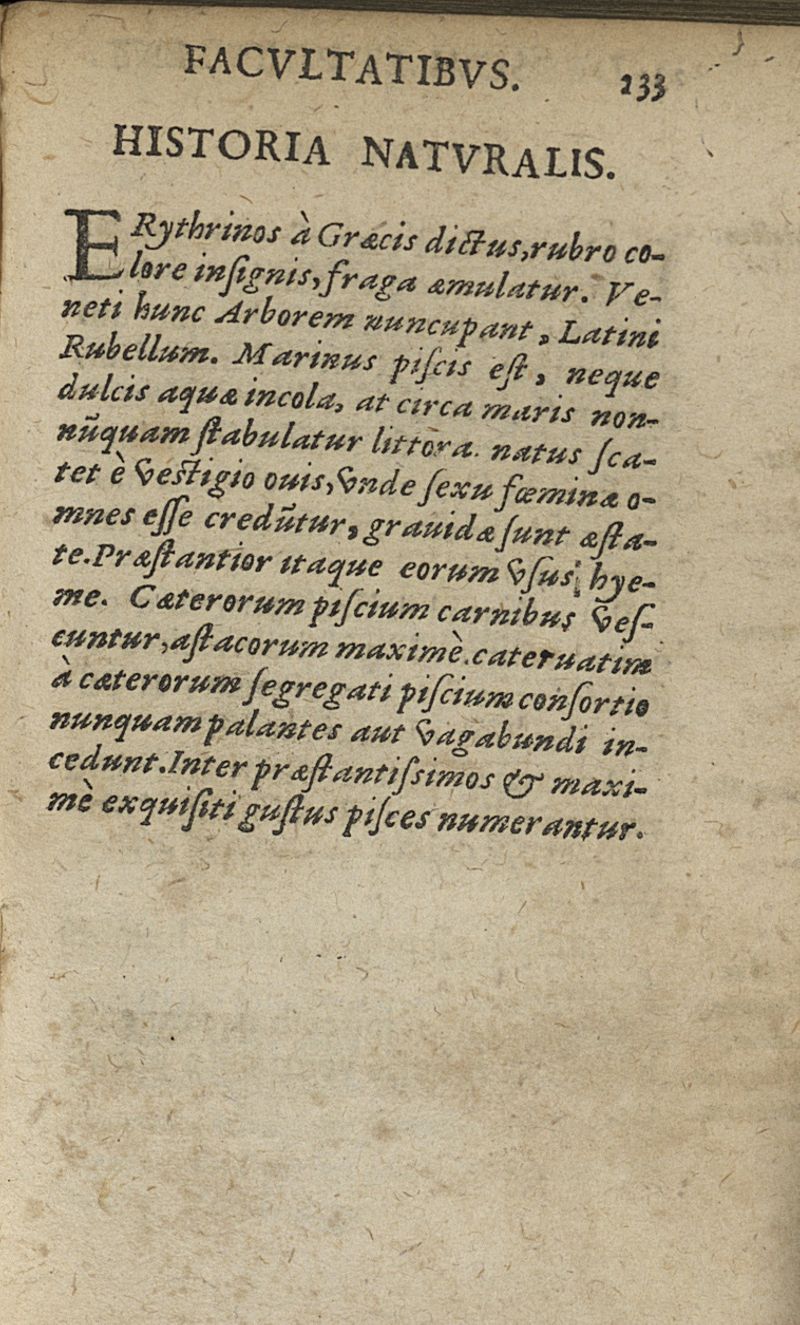 FACVLTATIBVS. 233
HISTORIA NATVRALIS.
ERythrinos à Græcis dictus, rubro co-
lore inſignis, fraga æmulatur. Ve-
neti hunc Arborem nuncupant, Latini
Rubellum. Marinus piſcis eſt, neque
dulcis aquæ incola, at circa maris non-
nũquam ſtabulatur littora. natus ſca-
tet è veſtigio ouis, vnde ſexu fœminæ o-
mnes eſſe credũtur, grauidæ ſunt æſta-
te. Præſtantior itaque eorum vſus, hye-
me. Cæterorum piſcium carnibus veſ-
cuntur, aſtacorum maximè. cateruatim
à cæterorum ſegregati piſcium conſortio
nunquam palantes aut vagabundi in-
cedunt. Inter præſtantiſsimos & maxi-
mè exquiſiti guſtus piſces numerantur.